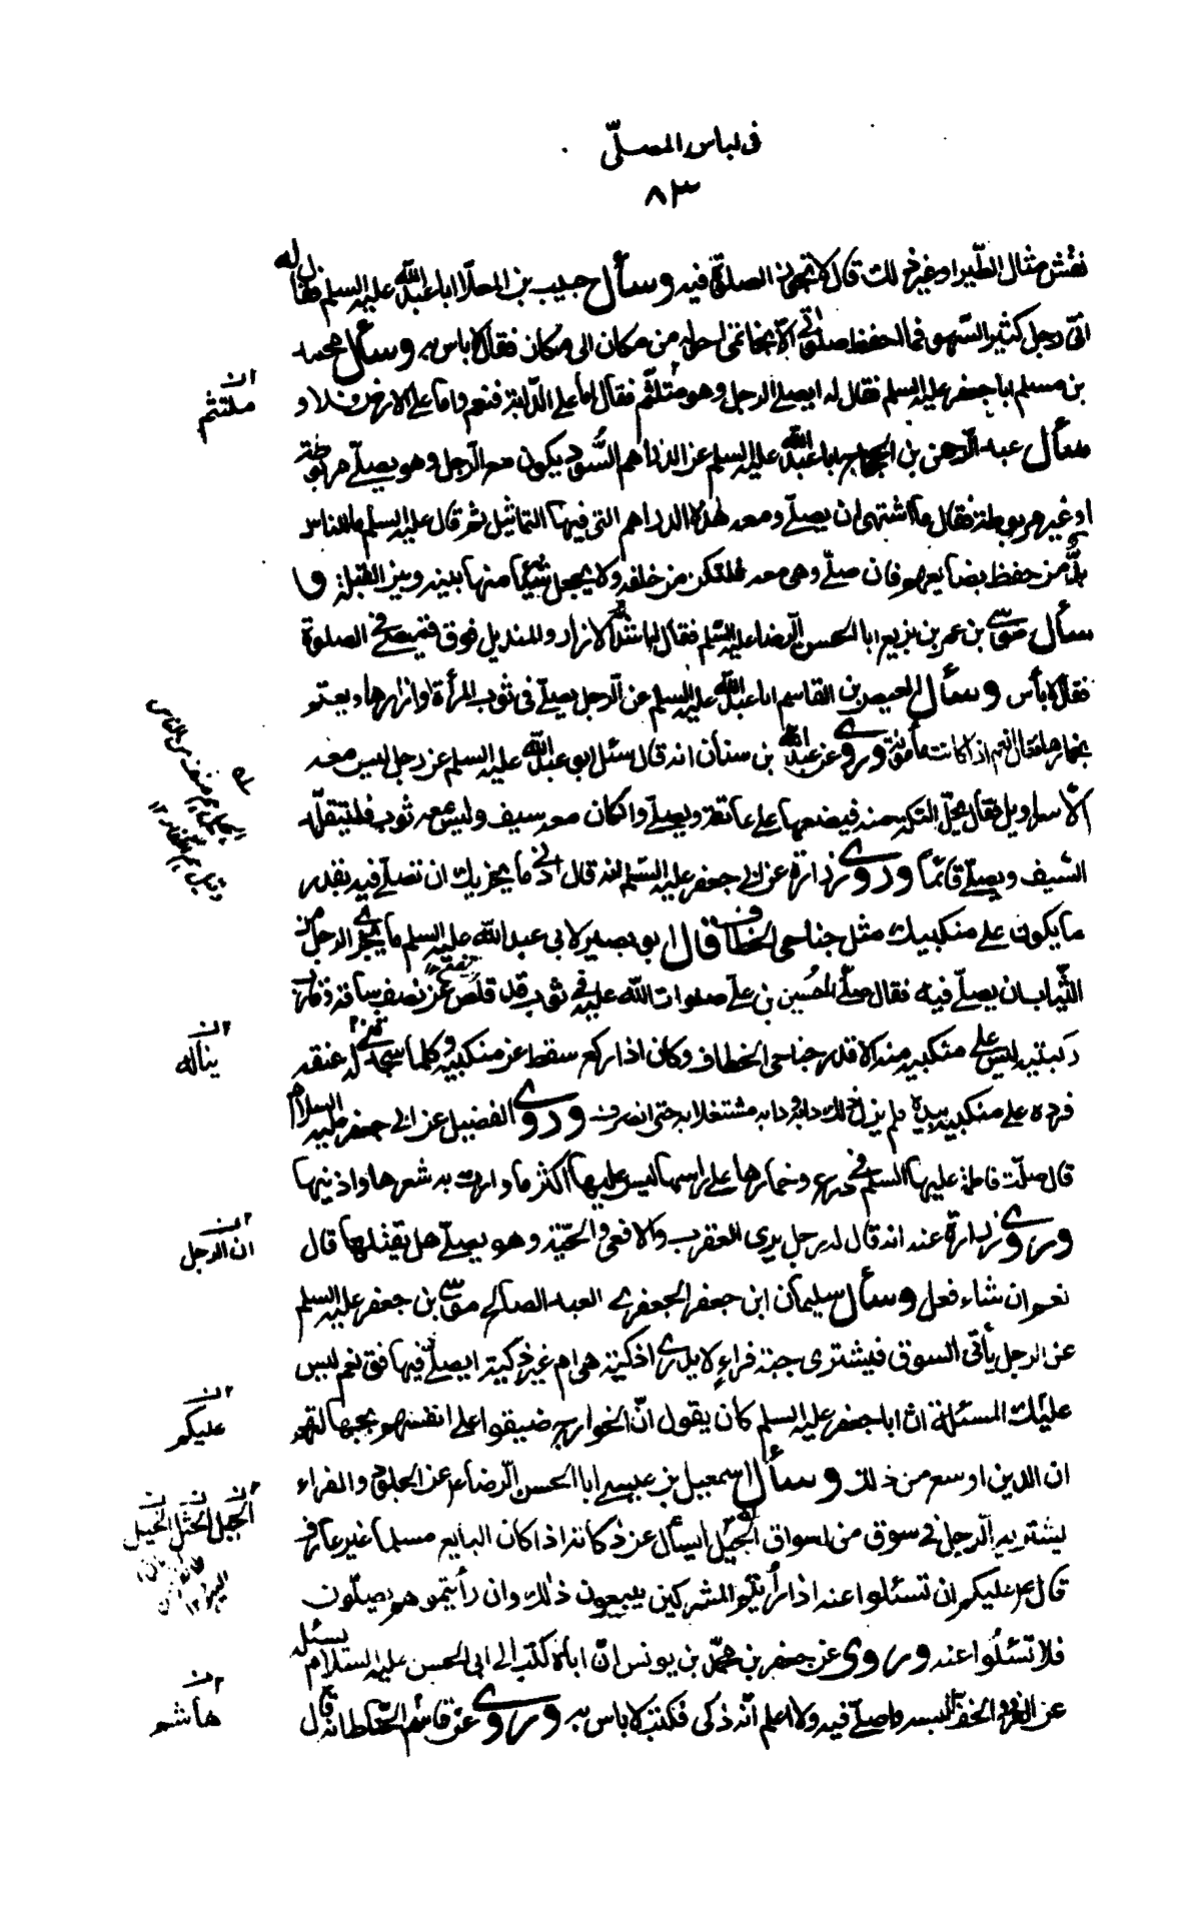 فى لباس المصلّى
٨٣
نقش مثال الطّير او غير ذلك قال لا تجوز الصلوة فيه وسأل حبيب بن المعلّا ابا عبد الله عليه السلم فقال له
انّى رجل كثير السّهو فما احفظ صلوتى الّا بخاتمى احوله من مكان الى مكان فقال لا باس به وسأل محمد
بن مسلم ابا جعفر عليه السلم فقال له ايصلى الرجل وهو متلثّم فقال اما على الدّابّة فنعم واما على الارض فلا و
ن
ملتثم
سأل عبد الرّحمن بن الحجاج ابا عبد الله عليه السلم عن الدراهم السُّود يكون مع الرّجل وهو يصلّى مربوطة
او غير مربوطة فقال ما اشتهى ان يصلّى ومعه هذه الدراهم التى فيها التماثيل ثم قال عليه السلم ما للناس
بدٌّ من حفظ بضايعهم فان صلّى وهى معه فلتكن من خلفه ولا يجعل شيئا منها بينه وبين القبلة و
سأل موسى بن عمر بن بزيع ابا الحسن الرّضا عليه السّلم فقال له اشدّ الازار والمنديل فوق قميصى فى الصلوة
فقال لا بأس وسأل العيص بن القاسم ابا عبد الله عليه السلم عن الرّجل يصلّى فى ثوب المرأة او ازارها ويعتم
بخمارها فقال نعم اذا كانت مأمونة وروى عن عبد الله بن سنان انه قال سئل ابو عبد الله عليه السلم عن رجل ليس معه
الّا سراويل فقال يحلّ التكة منه فيضعها على عاتقه ويصلّى وان كان معه سيف وليس معه ثوب فليتقلّد
السّيف ويصلّى قائمًا وروى زرارة عن ابى جعفر عليه السّلم انه قال ادنى ما يجزيك ان تصلّى فيه بقدر
ما يكون على منكبيك مثل جناحى الخطاف وقال ابو بصير لابى عبد الله عليه السلم ما يجزى الرجل من
الثّياب ان يصلّى فيه فقال صلّى الحُسين بن علىّ صلوات الله عليه فى ثوب قد قلص عن نصف ساقه وقارب
ركبتيه ليس على منكبيه منه الا قدر جناحى الخطاف وكان اذا ركع سقط عن منكبيه وكلما سجد له عنقه
ن
يناله
فرده على منكبيه بيده فلم يزل ذلك دابه ودابه مشتغلا به حتى انصرف وروى الفضيل عن ابى جعفر عليه السلام
قال صلّت فاطمة عليها السلم فى درع وخمارها على راسها ليس عليها اكثر ما وارت به شعرها واذنيها
وروى زرارة عنه انه قال له رجل يرى العقرب والافعى والحيّة وهو يصلّى هل يقتلها قال
ن
ان الرجل
نعم ان شاء فعل وسأل سليمان ابن جعفر الجعفرى العبد الصالح موسى بن جعفر عليه السلم
عن الرجل يأتى السوق فيشترى جبة فراءٍ لا يدرى اذكية هى ام غير ذكية ايصلّى فيها فق نعم ليس
عليك المسئلة ان ابا جعفر عليه السلم كان يقول انّ الخوارج ضيقوا على انفسهم بجهالتهم
ن
عليكم
ان الدين اوسع من ذلك وسأل اسمعيل بن عيسى ابا الحسن الرّضا ع عن الجلود والفراء
يشتريه الرّجل فى سوق من اسواق الجبل ايسأل عن ذكاته اذا كان البايع مسلما غير عارف
ن
الجبل ن الخثل ن الخيل
قال ع عليكم ان تسئلوا عنه اذا رأيتم المشركين يبيعون ذلك وان رأيتموهم يصلّون
فلا تسئلوا عنه وروى عن جعفر بن محمّد بن يونس انّ اباه كتب الى ابى الحسن عليه السّلام يسئله
عن الفرو والخف البسه واصلّى فيه ولا اعلم انّه ذكى فكتب لا باس به وروى عن قاسم الخياط انه قال
ن
هاشم